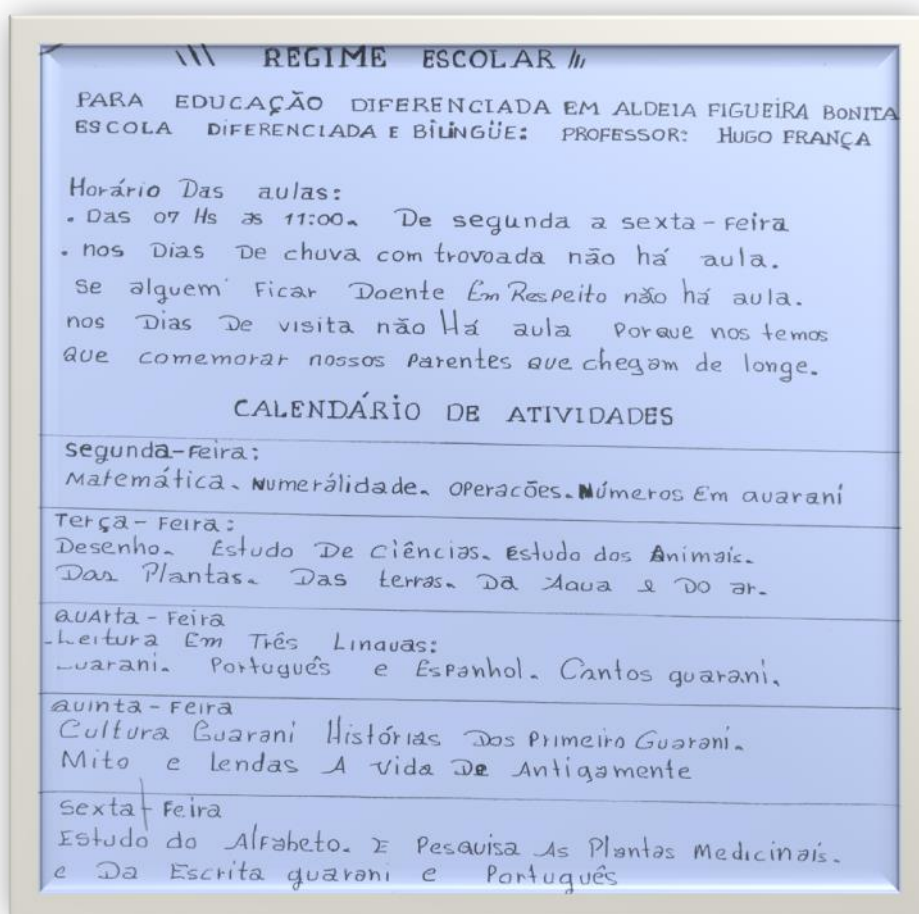 REGIME ESCOLAR
PARA EDUCAÇÃO DIFERENCIADA EM ALDEIA FIGUEIRA BONITA
ESCOLA DIFERENCIADA E BILINGÜE: PROFESSOR: HUGO FRANÇA
Horário Das aulas:
. Das 07 Hs as 11:00. De segunda a sexta-Feira
. nos Dias De chuva com trovoada não há aula.
Se alguem Ficar Doente Em Respeito não há aula.
nos Dias De visita não Há aula Porque nos temos
que comemorar nossos Parentes que chegam de longe.
CALENDÁRIO DE ATIVIDADES
Segunda-Feira:
Matemática. Numerálidade. Operacões. Números Em Guaraní
Terça-Feira:
Desenho. Estudo De Ciências. Estudo dos Animais.
Das Plantas. Das terras. Da Agua e Do ar.
Quarta-Feira
Leitura Em Três Linguas:
Guarani. Português e Espanhol. Cantos guarani.
Quinta-Feira
Cultura Guarani Histórias Dos Primeiro Guarani.
Mito e Lendas A vida De Antigamente
Sexta-Feira
Estudo do Alfabeto. E Pesquisa As Plantas Medicinais.
e Da Escrita guarani e Português